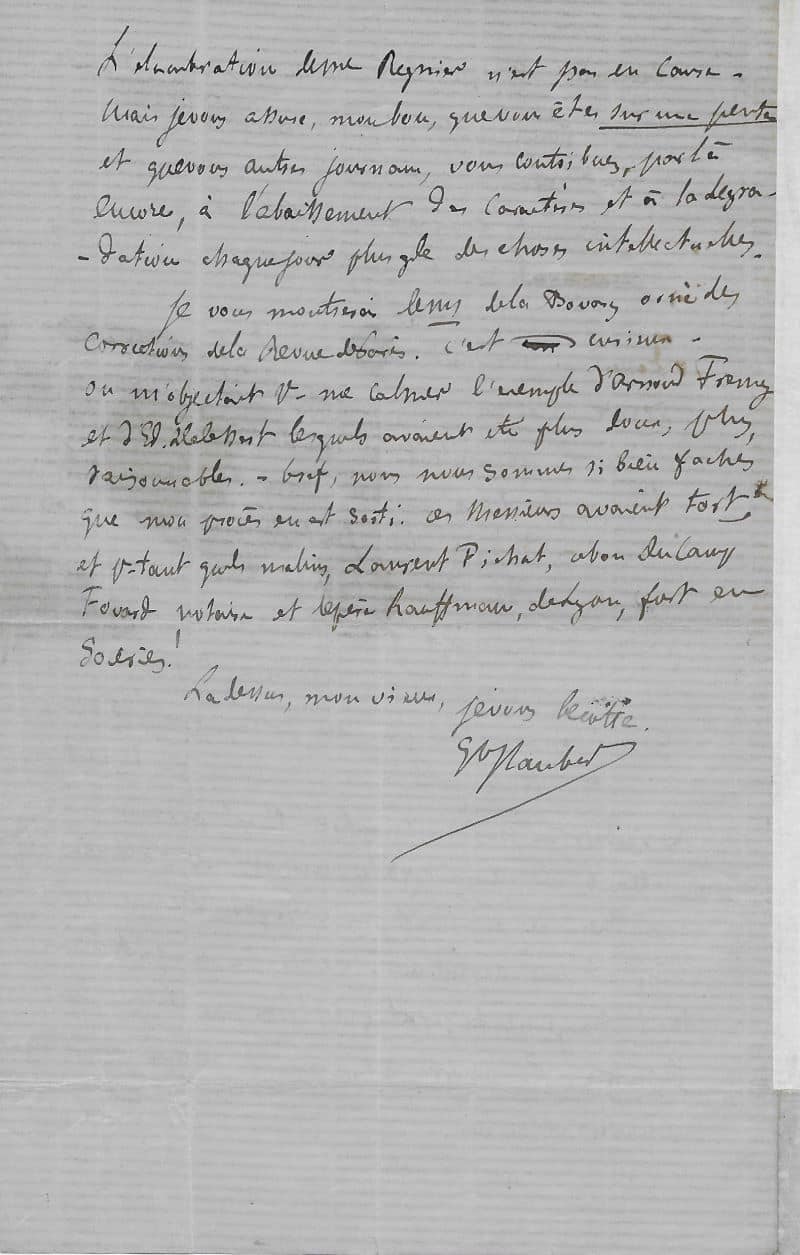 L'élucubration de Me Regnier n'est pas en cause –
Mais je vous assure, mon bon, que vous êtes sur une pente
et que vous autres journaux, vous contribuez, par là
encore, à l'abaissement des caractères et à la dégra-
-dation chaque jour plus gde des choses intellectuelles.
Je vous montrerai le ms de la Bovary orné des
corrections de la Revue de Paris. C'est curieux –
on m'objectait pr me calmer l'exemple d'Arnould Fremy
et d'Ed. Delessert lesquels avaient été plus doux, plus
raisonnables. – bref, nous nous sommes si bien fachés
que mon procès en est sorti. ces Messieurs avaient tort
et pr-tant quels malins, Laurent Pichat, le bon Du Camp
Fovard notaire et le père Kauffmann, de Lyon, fort en
Soieries!
La dessus, mon vieux, je vous bécotte.
Gve Flaubert